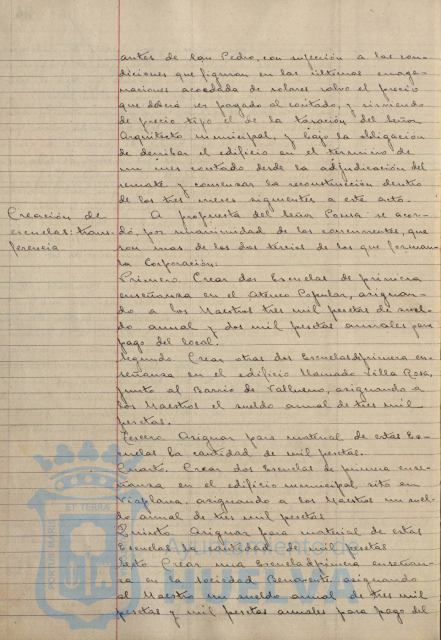 antes de San Pedro, con sujeción a las con-
diciones que figuran en las últimas enage-
naciones acordada de solares salvo el precio
que deberá ser pagado al contado, y sirviendo
de precio tipo el de la tasación del Señor
Arquitecto municipal, y bajo la obligación
de derribar el edificio en el término de
un mes contado desde la adjudicación del
remate y comenzar la reconstrucción dentro
de los tres meses siguientes a este acto.
Creación de
escuelas: trans-
ferencia
A propuesta del Señor se acor-
dó, por unanimidad de los concurrentes, que
son mas de los dos tercios de los que forman
la Corporación:
Primero. Crear dos Escuelas de primera
enseñanza en el Ateneo Popular, asignan-
do a los Maestros tres mil pesetas de suel-
do anual y dos mil pesetas anuales para
pago del local.
Segundo. Crear otras dos Escuelas de primera en-
señanza en el edificio llamado Villa Rosa,
junto al Barrio de Vallueno, asignando a
los Maestros el sueldo anual de tres mil
pesetas.
Tercero. Asignar para material de estas Es-
cuelas la cantidad de mil pesetas.
Cuarto. Crear dos Escuelas de primera ense-
ñanza en el edificio municipal sito en
Viaplana, asignando a los Maestros un suel-
do anual de tres mil pesetas
Quinto. Asignar para material de estas
Escuelas la cantidad de mil pesetas
Sexto. Crear una Escuela de primera enseñan-
za en la Sociedad Benavente, asignando
al Maestro un sueldo anual de tres mil
pesetas y mil pesetas anuales para pago del
PORTUS MARIS ET TERRAE
Ayuntamiento de
HUELVA